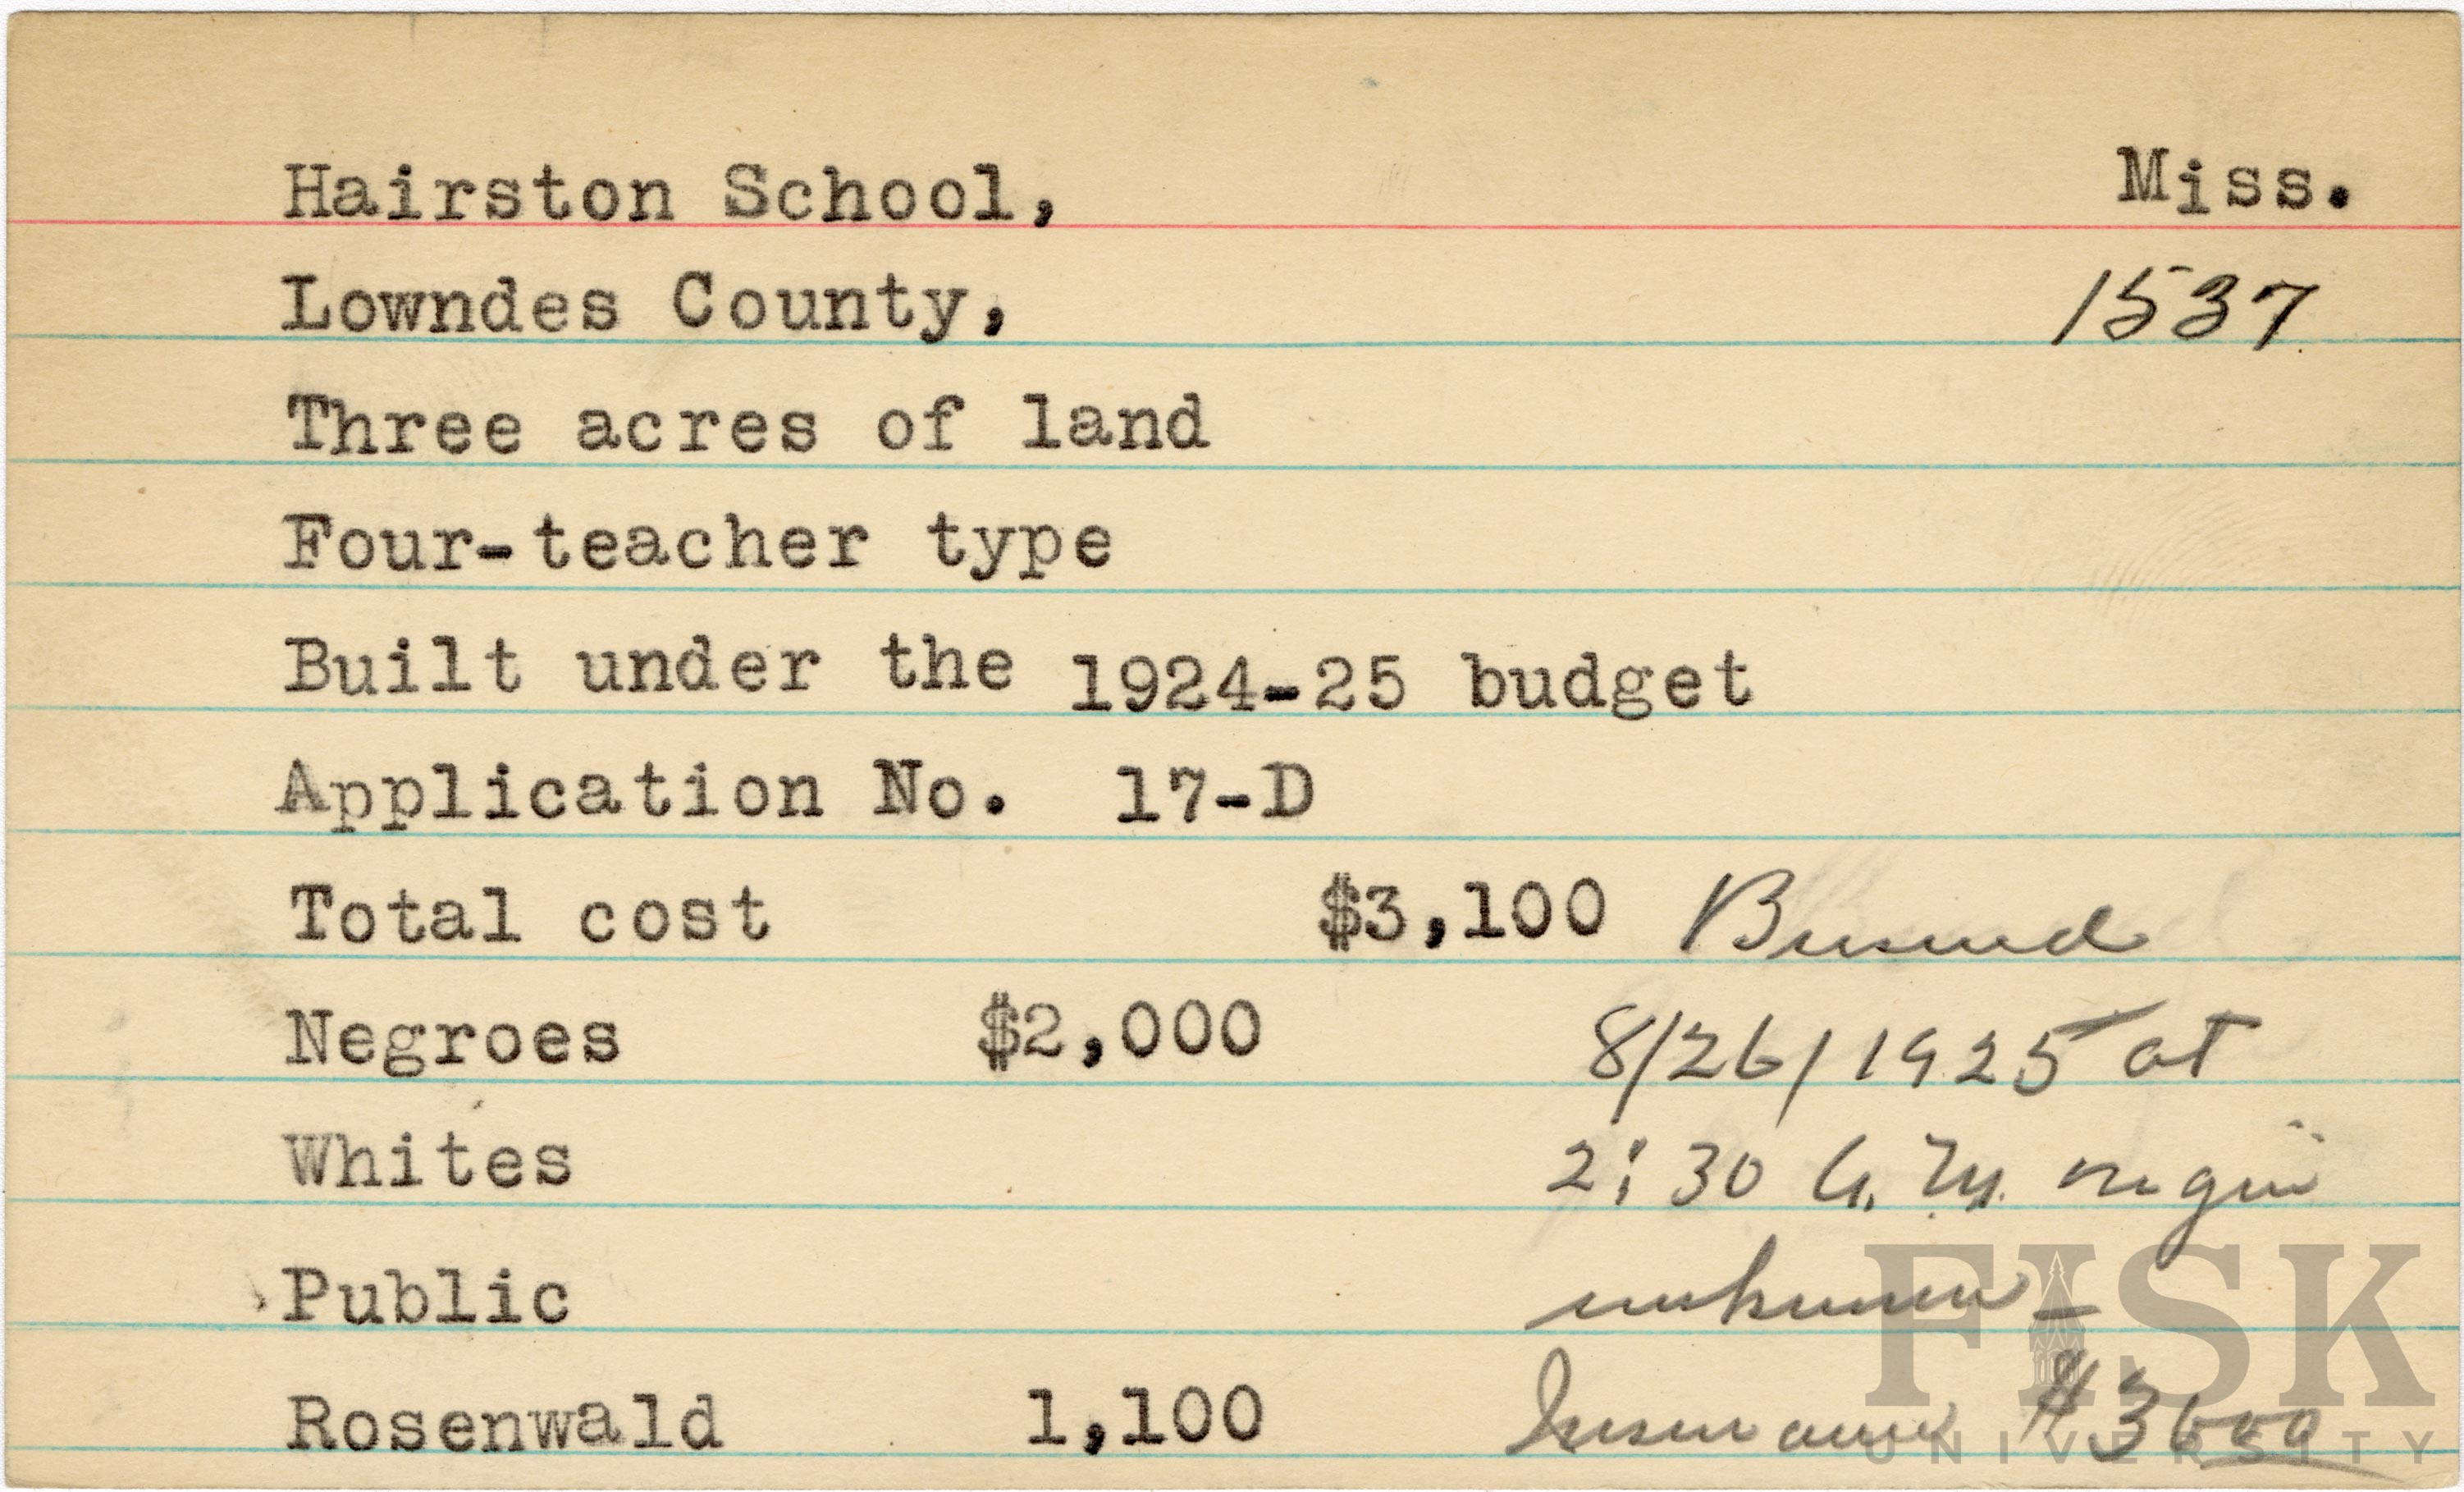 Hairston School, Miss.
Lowndes County, 1537
Three acres of land
Four-teacher type
Built under the 1924-25 budget
Application No. 17-D
Total cost $3,100 Burned
Negroes $2,000 8/26/1925 at
Whites 2:30 A.M. origin
Public unknown—
Rosenwald 1,100 Insurance $3600
FISK
UNIVERSITY